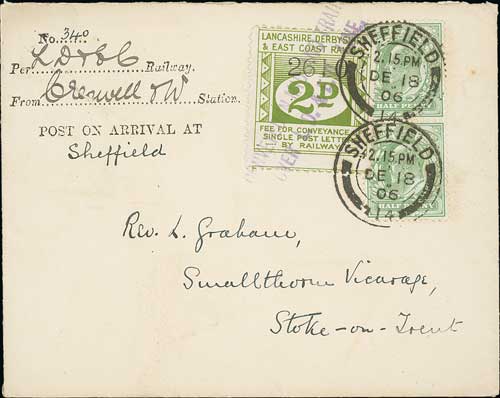 No. 340
Per L D & E C Railway.
From Creswell & W Station.
POST ON ARRIVAL AT
Sheffield
LANCASHIRE, DERBYSHIRE
& EAST COAST RAILWAY
2610
2D
FEE FOR CONVEYANCE
SINGLE POST LETTER
BY RAILWAY
SHEFFIELD
2.15.PM
DE 18
06
14
HALF PENNY
SHEFFIELD
2.15.PM
DE 18
06
14
HALF PENNY
Rev. L. Graham,
Smallthorn Vicarage,
Stoke-on-Trent